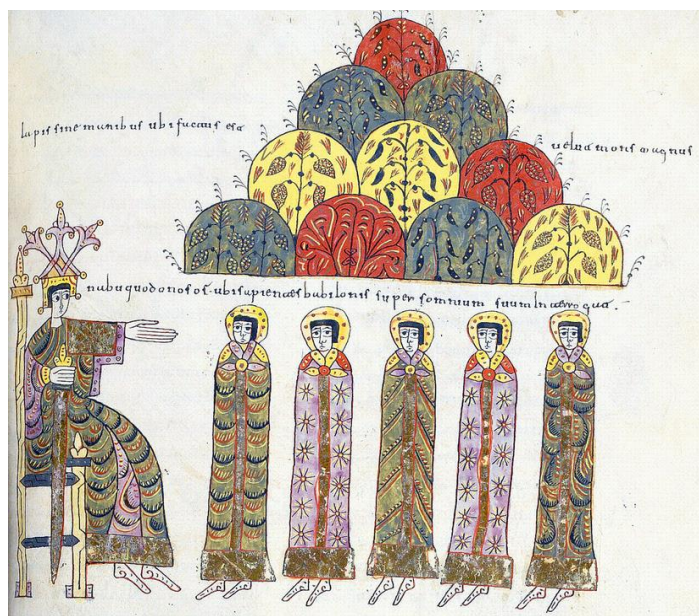 lapis sine manibus ubi factus est
uelut mons magnus
nabuquodonosor ubi sapientes babilonis super somnium suum interrogat